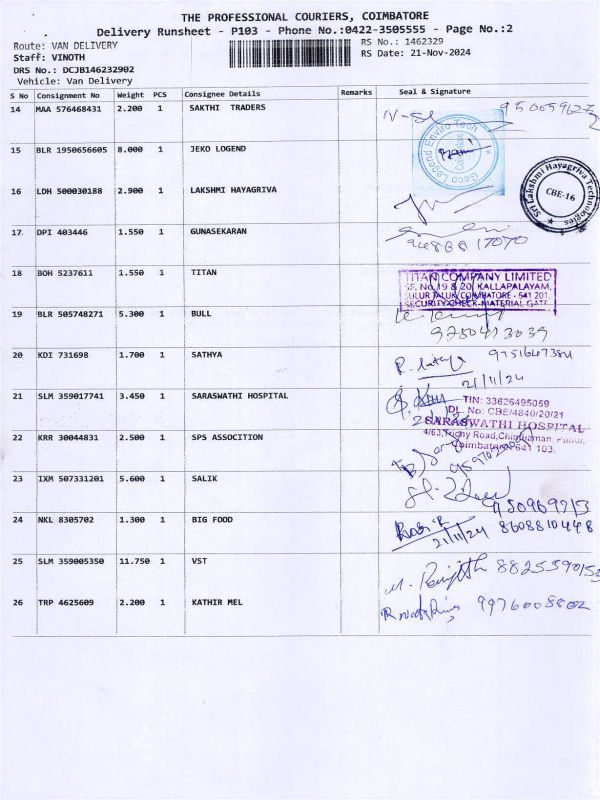 THE PROFESSIONAL COURIERS, COIMBATORE
Delivery Runsheet - P103 - Phone No.:0422-3505555 - Page No.:2
Route: VAN DELIVERY
RS No.: 1462329
Staff: VINOTH
RS Date: 21-Nov-2024
DRS No.: DCJB146232902
Vehicle: Van Delivery
S No Consignment No Weight PCS Consignee Details Remarks Seal & Signature
14 MAA 576468431 2.200 1 SAKTHI TRADERS
Geco Legend Enviro Tech
15 BLR 1950656605 8.000 1 JEKO LOGEND
16 LDH 500030188 2.900 1 LAKSHMI HAYAGRIVA
Sri Lakshmi Hayagriva Technologies
CBE-16
17 DPI 403446 1.550 1 GUNASEKARAN
18 BOH 5237611 1.550 1 TITAN
TITAN COMPANY LIMITED
SF. No.19 & 20, KALLAPALAYAM,
SULUR TALUK, COIMBATORE - 641 201.
SECURITY CHECK-MATERIAL GATE
19 BLR 505748271 5.300 1 BULL
20 KDI 731698 1.700 1 SATHYA
21/11/24
21 SLM 359017741 3.450 1 SARASWATHI HOSPITAL
TIN: 33626495059
DL. No: CBE/4840/20/21
SARASWATHI HOSPITAL
4/63, Trichy Road, Chinthaman Pudur,
Coimbatore 641 103.
22 KRR 30044831 2.500 1 SPS ASSOCITION
23 IXM 507331201 5.600 1 SALIK
24 NKL 8305702 1.300 1 BIG FOOD
21/11/24 8608810448
25 SLM 359005350 11.750 1 VST
26 TRP 4625609 2.200 1 KATHIR MEL
9976008802